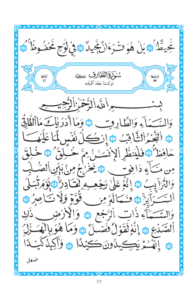 مُّحِيطٌۢ بَلْ هُوَ قُرْءَانٌ مَّجِيدٌ فِى لَوْحٍ مَّحْفُوظٍۭ
سُورَةُ الطَّارِقِ
بِسْمِ اللَّهِ الرَّحْمَٰنِ الرَّحِيمِ
وَالسَّمَآءِ وَالطَّارِقِ وَمَآ أَدْرَىٰكَ مَا الطَّارِقُ
النَّجْمُ الثَّاقِبُ إِن كُلُّ نَفْسٍ لَّمَّا عَلَيْهَا
حَافِظٌ فَلْيَنظُرِ الْإِنسَٰنُ مِمَّ خُلِقَ خُلِقَ
مِن مَّآءٍ دَافِقٍ يَخْرُجُ مِنۢ بَيْنِ الصُّلْبِ
وَالتَّرَآئِبِ إِنَّهُۥ عَلَىٰ رَجْعِهِۦ لَقَادِرٌ يَوْمَ تُبْلَى
السَّرَآئِرُ فَمَا لَهُۥ مِن قُوَّةٍ وَلَا نَاصِرٍ
وَالسَّمَآءِ ذَاتِ الرَّجْعِ وَالْأَرْضِ ذَاتِ
الصَّدْعِ إِنَّهُۥ لَقَوْلٌ فَصْلٌ وَمَا هُوَ بِالْهَزْلِ
إِنَّهُمْ يَكِيدُونَ كَيْدًا وَأَكِيدُ كَيْدًا